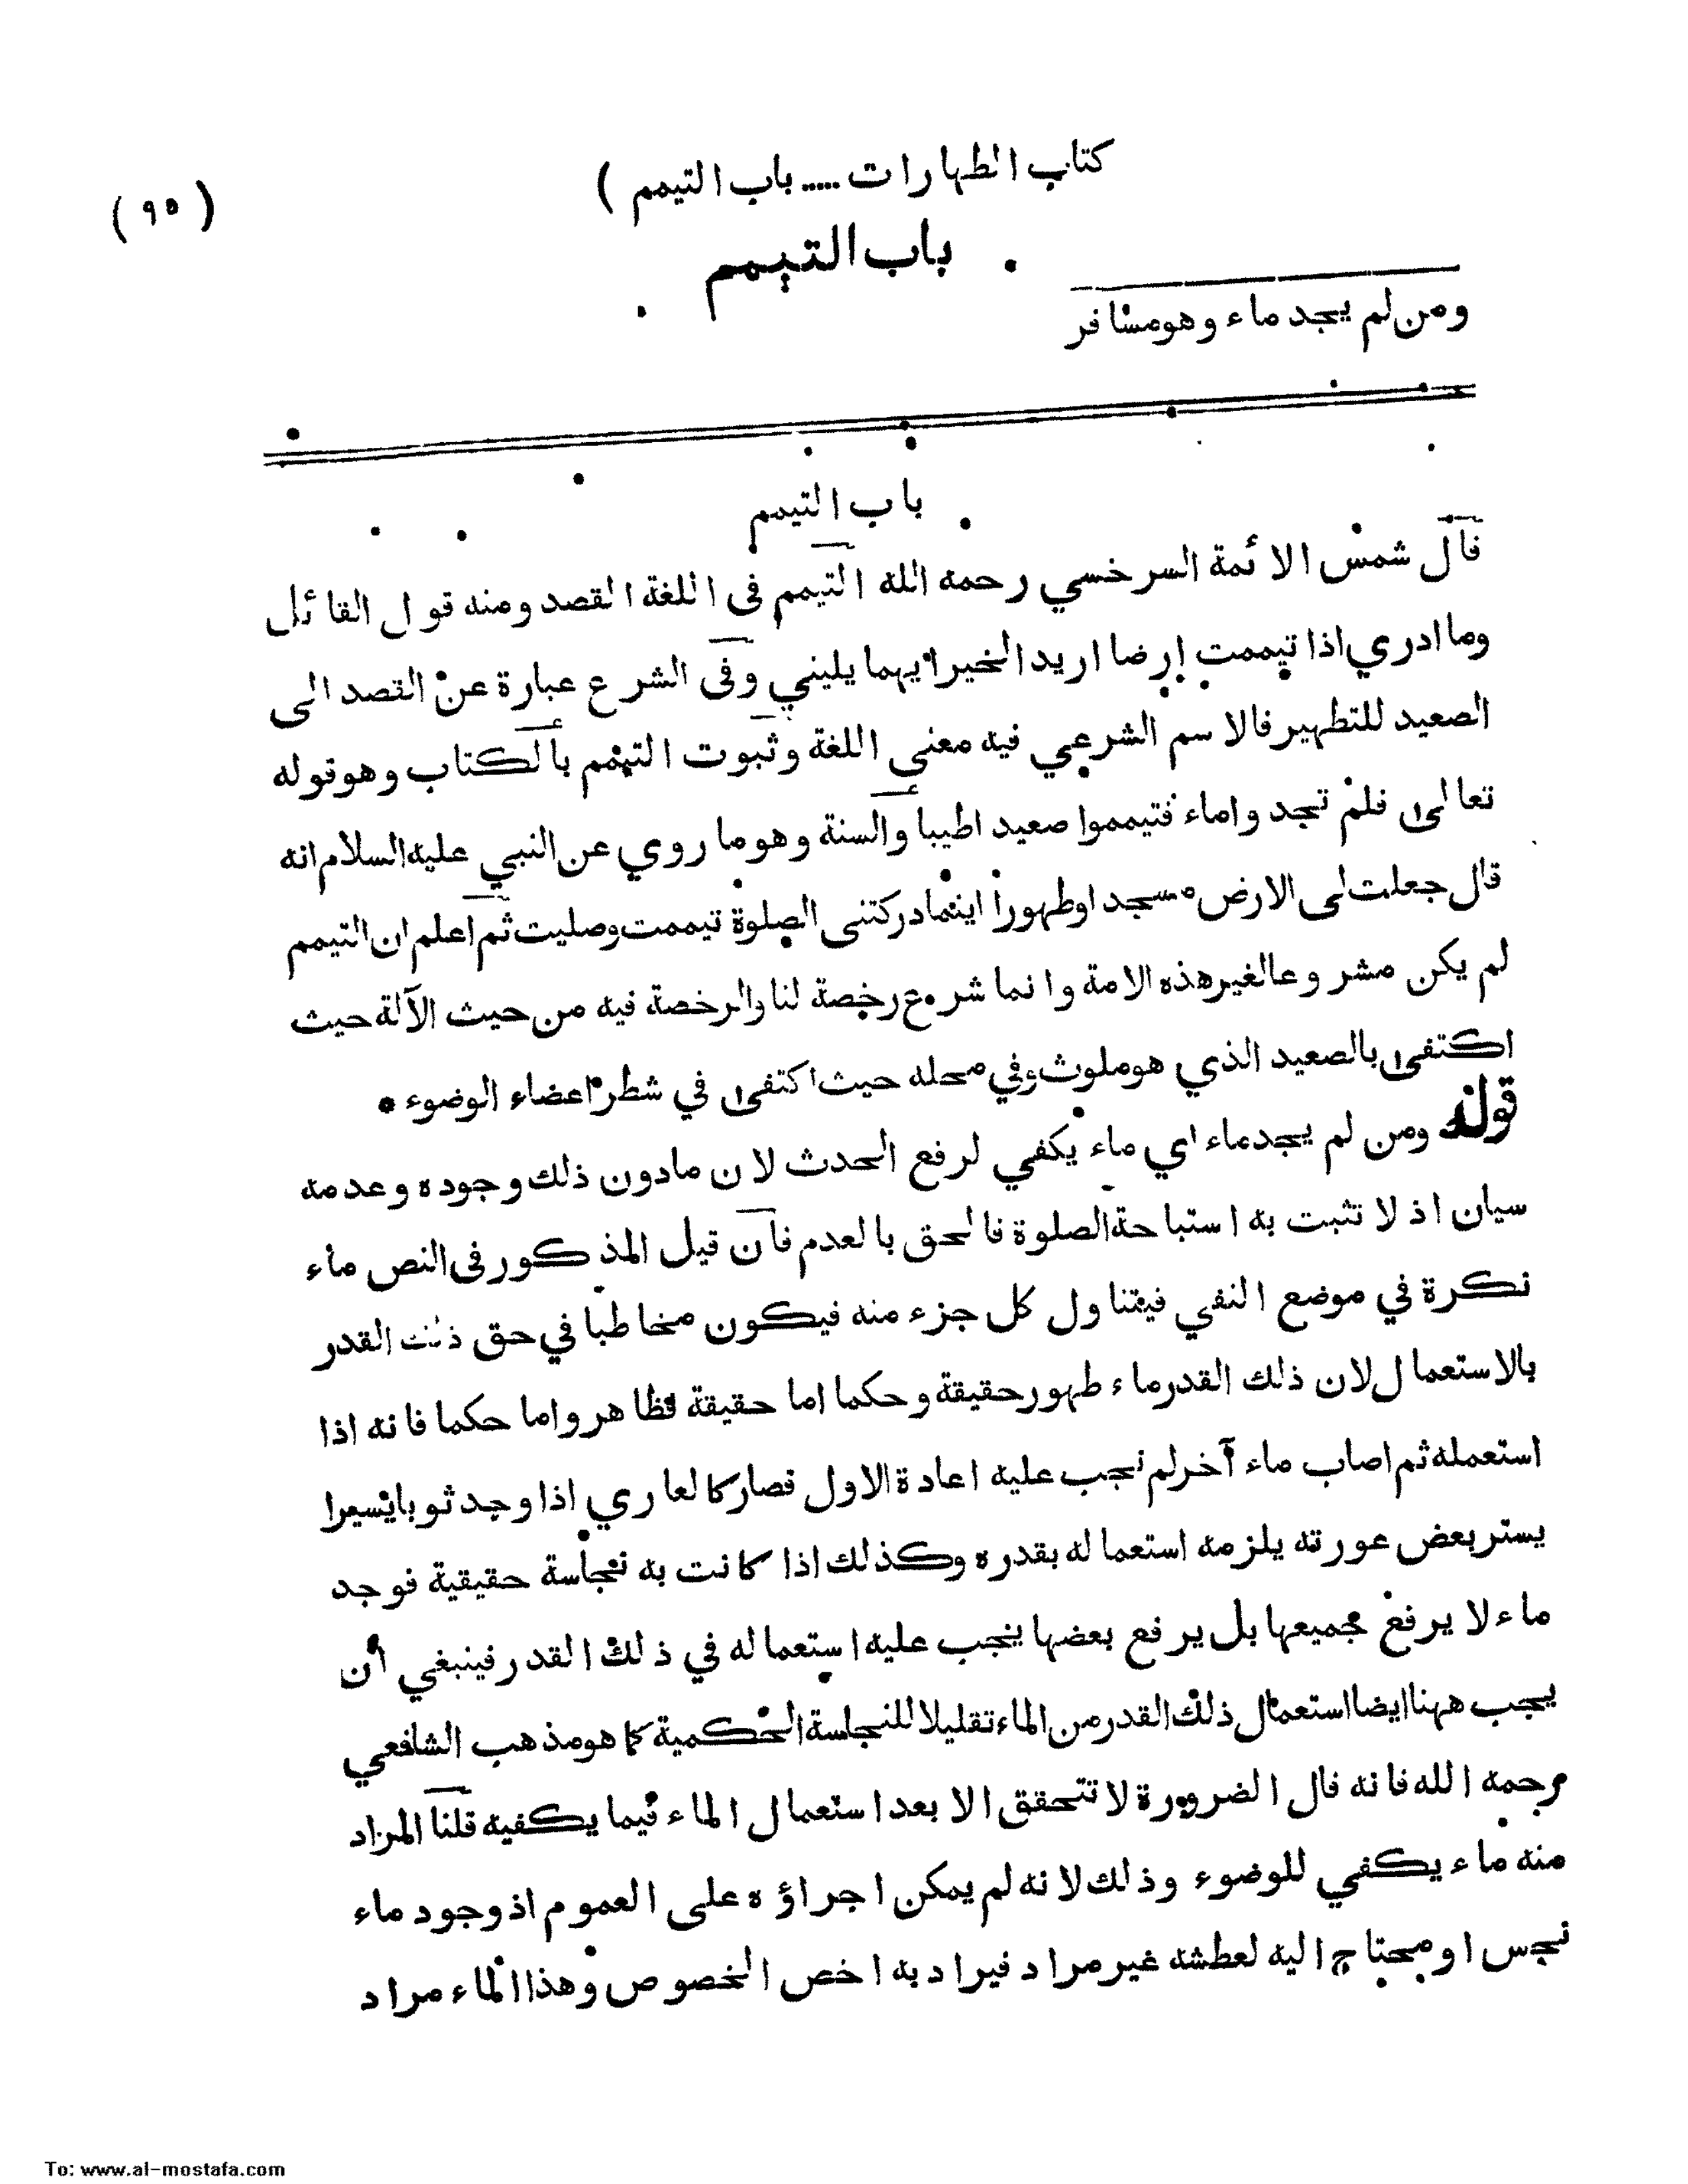 كتاب الطهارات ..... باب التيمم )
( ٩٥ )
باب التيمم
ومن لم يجد ماء وهو مسافر
باب التيمم
قال شمس الائمة السرخسي رحمه الله التيمم في اللغة القصد ومنه قول القائل
وما ادري اذا تيممت ارضا اريد الخير ايهما يليني وفى الشرع عبارة عن القصد الى
الصعيد للتطهير فالاسم الشرعي فيه معنى اللغة وثبوت التيمم بالكتاب وهو قوله
تعالى فلم تجدوا ماء فتيمموا صعيدا طيبا والسنة وهو ما روي عن النبي عليه السلام انه
قال جعلت لى الارض مسجدا وطهورا اينما دركتنى الصلوة تيممت وصليت ثم اعلم ان التيمم
لم يكن مشروعا لغير هذه الامة وانما شرع رخصة لنا والرخصة فيه من حيث الآلة حيث
اكتفى بالصعيد الذي هو ملوث وفي محله حيث اكتفى في شطر اعضاء الوضوء *
قوله ومن لم يجد ماء اي ماء يكفي لرفع الحدث لان مادون ذلك وجوده وعدمه
سيان اذ لا تثبت به استباحة الصلوة فالحق بالعدم فان قيل المذكور فى النص ماء
نكرة في موضع النفي فيتناول كل جزء منه فيكون مخاطبا في حق ذلك القدر
بالاستعمال لان ذلك القدر ماء طهور حقيقة وحكما اما حقيقة فظاهر واما حكما فانه اذا
استعمله ثم اصاب ماء آخر لم تجب عليه اعادة الاول فصار كالعاري اذا وجد ثوبا يسيرا
يستر بعض عورته يلزمه استعماله بقدره وكذلك اذا كانت به نجاسة حقيقية فوجد
ماء لا يرفع جميعها بل يرفع بعضها يجب عليه استعماله في ذلك القدر فينبغي ان
يجب ههنا ايضا استعمال ذلك القدر من الماء تقليلا للنجاسة الحكمية كما هو مذهب الشافعي
رحمه الله فانه قال الضرورة لا تتحقق الا بعد استعمال الماء فيما يكفيه قلنا المراد
منه ماء يكفي للوضوء وذلك لانه لم يمكن اجراؤه على العموم اذ وجود ماء
نجس او محتاج اليه لعطشه غير مراد فيراد به اخص الخصوص وهذا الماء مراد
To: www.al-mostafa.com